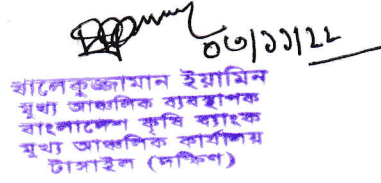 ০৩/১১/২২
খালেকুজ্জামান ইয়ামিন
মুখ্য আঞ্চলিক ব্যবস্থাপক
বাংলাদেশ কৃষি ব্যাংক
মুখ্য আঞ্চলিক কার্যালয়
টাঙ্গাইল (দক্ষিণ)